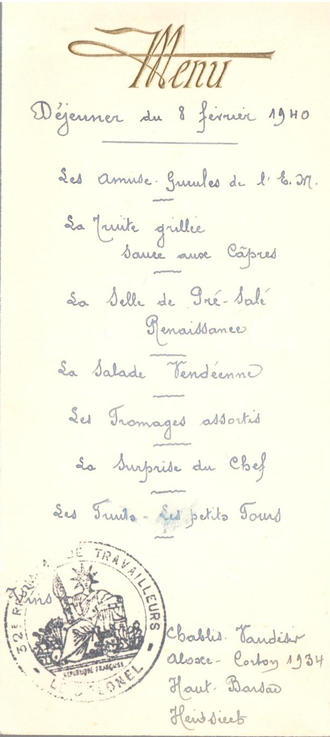 Menu
Déjeuner du 8 février 1940
Les Amuse-Gueules de l'E.M.
La Truite grillée
Sauce aux Câpres
La Selle de Pré-Salé
Renaissance
La Salade Vendéenne
Les Fromages assortis
La Surprise du Chef
Les Fruits - Les petits Fours
Vins
32E DE TRAVAILLEURS
REPUBLIQUE FRANÇAISE
Chablis
Aloxe-Corton 1934
Haut-Barsac
Heidsieck